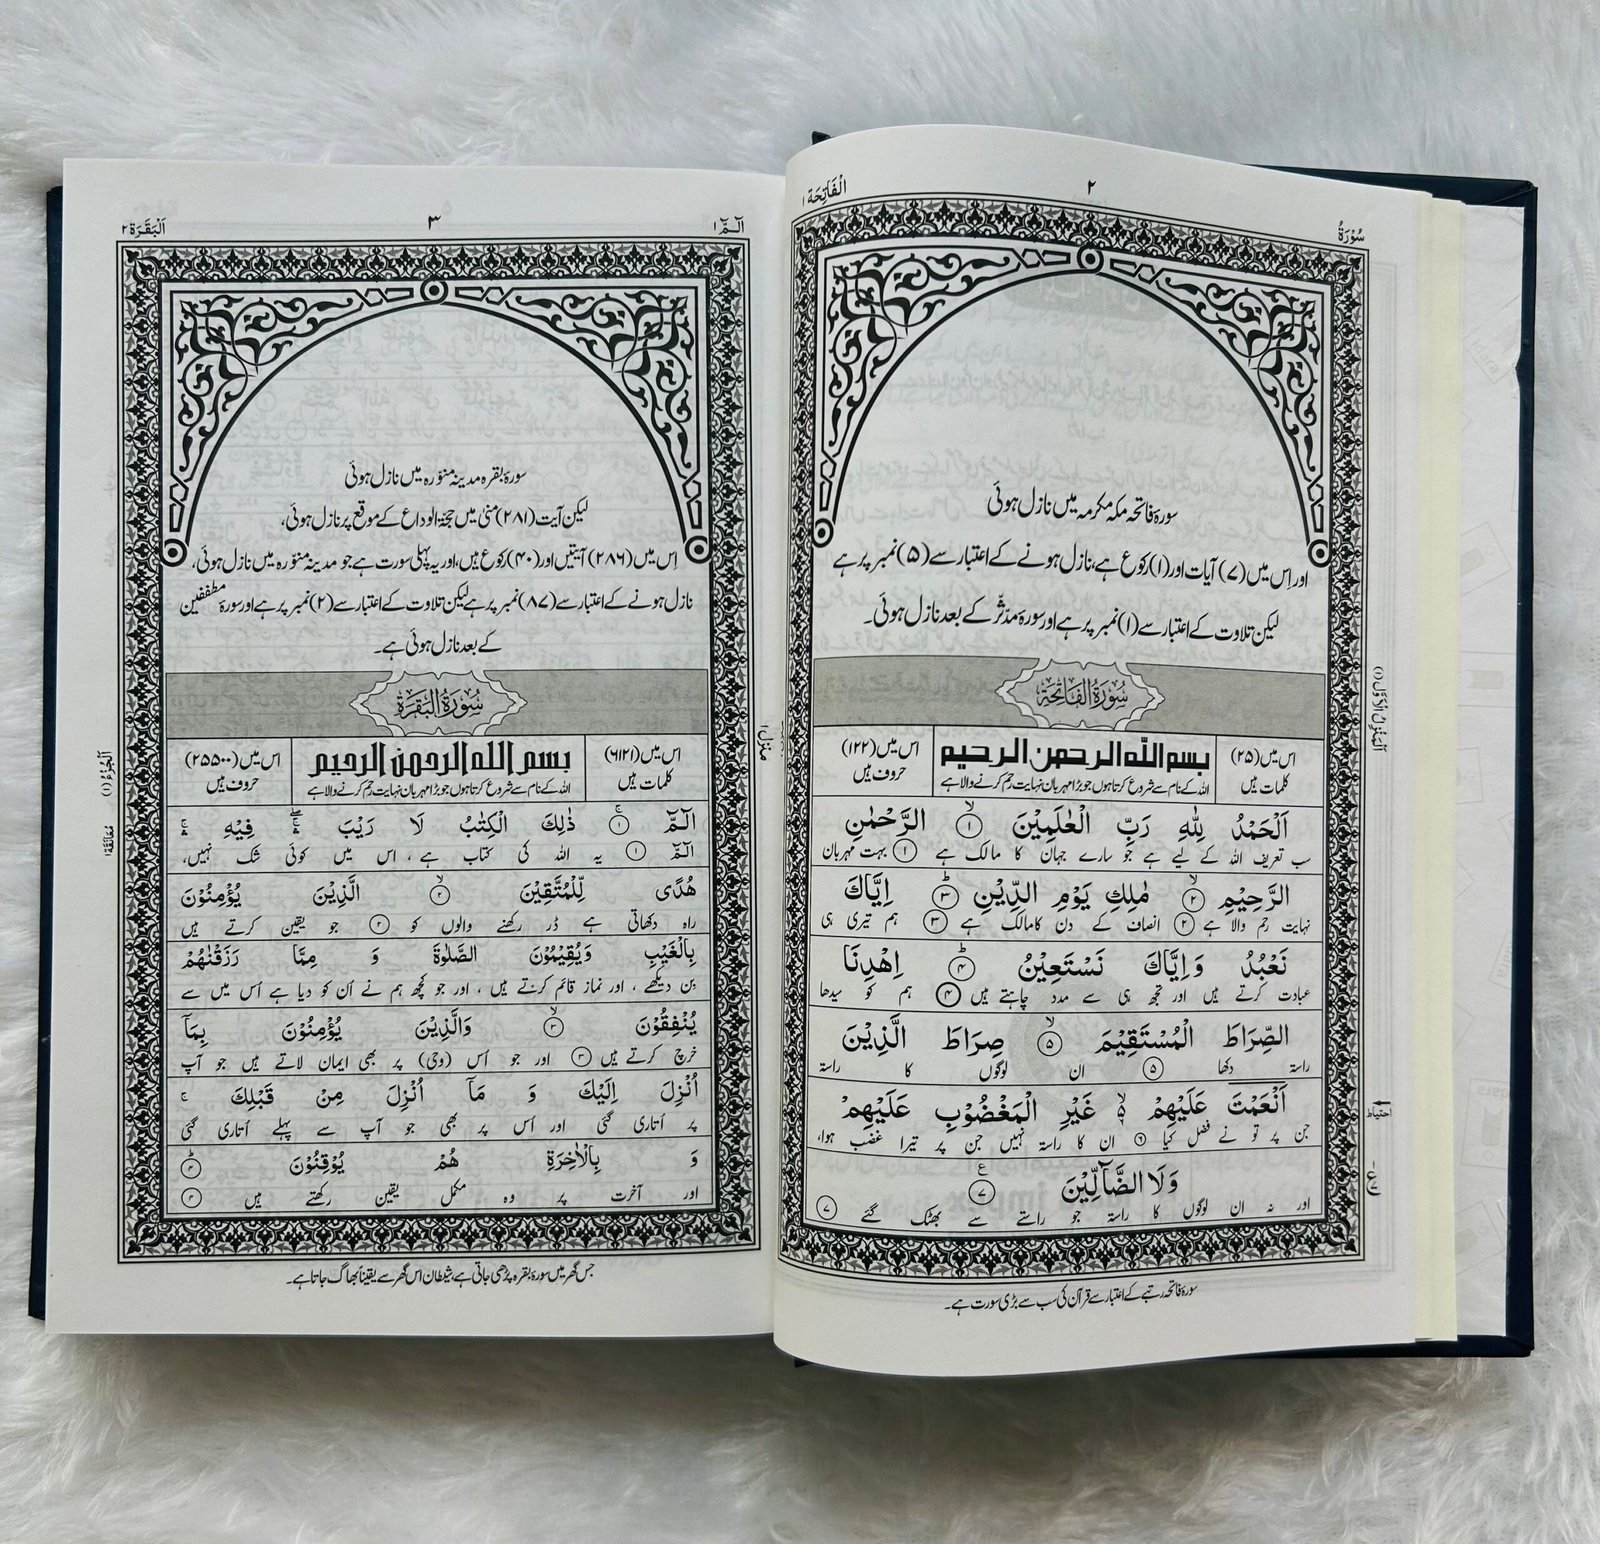 سُوْرَةُ
٢
الْفَاتِحَة ١
سورۂ فاتحہ مکہ مکرمہ میں نازل ہوئی
اور اِس میں (٧) آیات اور (١) رکوع ہے، نازل ہونے کے اعتبار سے (۵) نمبر پر ہے
لیکن تلاوت کے اعتبار سے (١) نمبر پر ہے اور سورۂ مدّثّر کے بعد نازل ہوئی۔
سُوْرَةُ الْفَاتِحَة
اس میں (٢۵) کلمات ہیں
بسم اللہ الرحمن الرحیم
اللہ کے نام سے شروع کرتا ہوں جو بڑا مہربان نہایت رحم کرنے والا ہے
اس میں (١٢٢) حروف ہیں
اَلْحَمْدُ لِلّٰهِ رَبِّ الْعٰلَمِيْنَ ۙ ١ الرَّحْمٰنِ
سب تعریف اللہ کے لیے ہے جو سارے جہان کا مالک ہے ١ بہت مہربان
الرَّحِيْمِ ۙ ٢ مٰلِكِ يَوْمِ الدِّيْنِ ؕ ٣ اِيَّاكَ
نہایت رحم والا ہے ٢ انصاف کے دن کا مالک ہے ٣ ہم تیری ہی
نَعْبُدُ وَ اِيَّاكَ نَسْتَعِيْنُ ؕ ۴ اِهْدِنَا
عبادت کرتے ہیں اور تجھ ہی سے مدد چاہتے ہیں ۴ ہم کو سیدھا
الصِّرَاطَ الْمُسْتَقِيْمَ ۙ ۵ صِرَاطَ الَّذِيْنَ
راستہ دکھا ۵ ان لوگوں کا راستہ
اَنْعَمْتَ عَلَيْهِمْ ۙ۬ غَيْرِ الْمَغْضُوْبِ عَلَيْهِمْ
جن پر تو نے فضل کیا ٦ ان کا راستہ نہیں جن پر تیرا غضب ہوا،
وَلَا الضَّآلِّيْنَ ع ٧
اور نہ ان لوگوں کا راستہ جو راستے سے بھٹک گئے ٧
سورۂ فاتحہ رتبے کے اعتبار سے قرآن کی سب سے بڑی سورت ہے۔
اَلْمَنْزِلُ الْاَوَّل (١)
احتیاط
الٓـمّٓ ١
٣
اَلْبَقَرَة ٢
سورۂ بقرہ مدینہ منوّرہ میں نازل ہوئی
لیکن آیت (٢٨١) منیٰ میں حجۃ الوداع کے موقع پر نازل ہوئی،
اِس میں (٢٨٦) آیتیں اور (۴٠) رکوع ہیں، اور یہ پہلی سورت ہے جو مدینہ منوّرہ میں نازل ہوئی،
نازل ہونے کے اعتبار سے (٨٧) نمبر پر ہے لیکن تلاوت کے اعتبار سے (٢) نمبر پر ہے اور سورۂ مطففین
کے بعد نازل ہوئی ہے۔
سُوْرَةُ الْبَقَرَة
اس میں (٦١٢١) کلمات ہیں
بسم اللہ الرحمن الرحیم
اللہ کے نام سے شروع کرتا ہوں جو بڑا مہربان نہایت رحم کرنے والا ہے
اس میں (٢۵۵٠٠) حروف ہیں
الٓـمّٓ ۚ ١ ذٰلِكَ الْكِتٰبُ لَا رَيْبَ ۛۖ فِيْهِ ۛۚ
الٓـمّٓ ١ یہ اللہ کی کتاب ہے، اس میں کوئی شک نہیں،
هُدًى لِّلْمُتَّقِيْنَ ۙ ٢ الَّذِيْنَ يُؤْمِنُوْنَ
راہ دکھاتی ہے ڈر رکھنے والوں کو ٢ جو یقین کرتے ہیں
بِالْغَيْبِ وَيُقِيْمُوْنَ الصَّلٰوةَ وَ مِمَّا رَزَقْنٰهُمْ
بِن دیکھے، اور نماز قائم کرتے ہیں، اور جو کچھ ہم نے اُن کو دیا ہے اُس میں سے
يُنْفِقُوْنَ ۙ ٣ وَالَّذِيْنَ يُؤْمِنُوْنَ بِمَآ
خرچ کرتے ہیں ٣ اور جو اُس (وحی) پر بھی ایمان لاتے ہیں جو آپ
اُنْزِلَ اِلَيْكَ وَ مَآ اُنْزِلَ مِنْ قَبْلِكَ ۚ
پر اُتاری گئی اور اُس پر بھی جو آپ سے پہلے اُتاری گئی
وَ بِالْاٰخِرَةِ هُمْ يُوْقِنُوْنَ ؕ ۴
اور آخرت پر وہ مکمل یقین رکھتے ہیں ۴
جس گھر میں سورۂ بقرہ پڑھی جاتی ہے، شیطان اس گھر سے یقیناً بھاگ جاتا ہے۔
منزل ١
اَلْجُزْءُ (١)
مُعَانَقَة ١